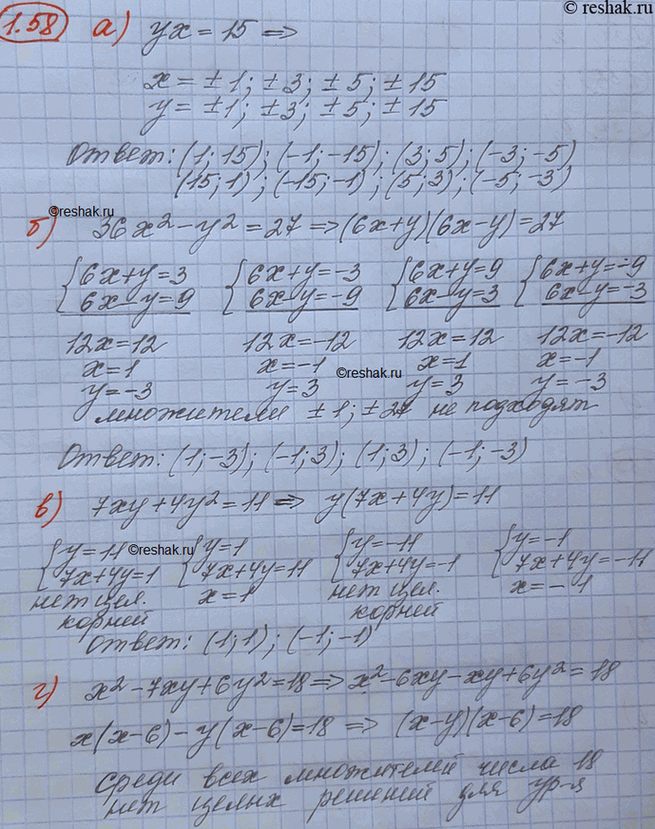 © reshak.ru
1.58 а) yx = 15 ⇒
x = ±1; ±3; ±5; ±15
y = ±1; ±3; ±5; ±15
Ответ: (1; 15); (-1; -15); (3; 5); (-3; -5)
(15; 1); (-15; -1); (5; 3); (-5; -3)
©reshak.ru
б) 36x² - y² = 27 ⇒ (6x+y)(6x-y) = 27
{6x+y=3 {6x+y=-3 {6x+y=9 {6x+y=-9
6x-y=9 6x-y=-9 6x-y=3 6x-y=-3
12x=12 12x=-12 12x=12 12x=-12
x=1 x=-1 x=1 x=-1
©reshak.ru
y=-3 y=3 y=3 y=-3
множители ±1; ±27 не подходят
Ответ: (1; -3); (-1; 3); (1; 3); (-1; -3)
в) 7xy + 4y² = 11 ⇒ y(7x+4y) = 11
{y=11 ©reshak.ru {y=1 {y=-11 {y=-1
7x+4y=1 7x+4y=11 7x+4y=-1 7x+4y=-11
нет цел. x=1 нет цел. x=-1
корней корней
Ответ: (1; 1); (-1; -1)
г) x² - 7xy + 6y² = 18 ⇒ x² - 6xy - xy + 6y² = 18
x(x-6) - y(x-6) = 18 ⇒ (x-y)(x-6) = 18
Среди всех множителей числа 18
нет целых решений для ур-я